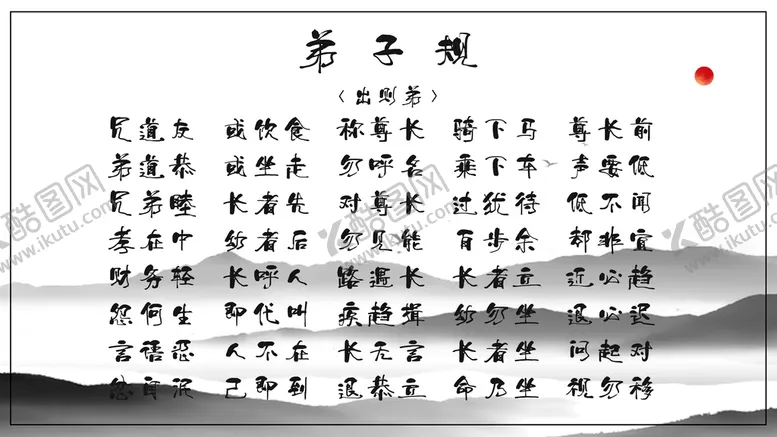 弟子规
〈出则弟〉
兄道友 或饮食 称尊长 骑下马 尊长前
弟道恭 或坐走 勿呼名 乘下车 声要低
兄弟睦 长者先 对尊长 过犹待 低不闻
孝在中 幼者后 勿见能 百步余 却非宜
财务轻 长呼人 路遇长 长者立 近必趋
怨何生 即代叫 疾趋揖 幼勿坐 退必迟
言语忍 人不在 长无言 长者坐 问起对
忿自泯 己即到 退恭立 命乃坐 视勿移
酷图网
www.ikutu.com
酷图网
www.ikutu.com
酷图网
www.ikutu.com